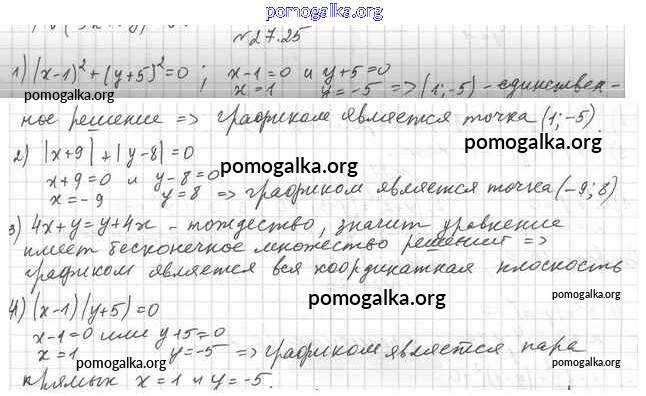 pomogalka.org
№27.25
1) (x-1)²+(y+5)²=0 ; x-1=0 и y+5=0
x=1 y=-5 => (1;-5) - единствен-
pomogalka.org
ное решение => графиком является точка (1;-5).
pomogalka.org
2) |x+9|+|y-8|=0
pomogalka.org
x+9=0 и y-8=0
x=-9 y=8 => графиком является точка (-9; 8)
pomogalka.org
3) 4x+y=y+4x - тождество, значит уравнение
имеет бесконечное множество решений =>
графиком является вся координатная плоскость
4) (x-1)(y+5)=0
pomogalka.org
pomogalka.org
x-1=0 или y+5=0
x=1 y=-5 => графиком является пара
pomogalka.org
pomogalka.org
прямых x=1 и y=-5.